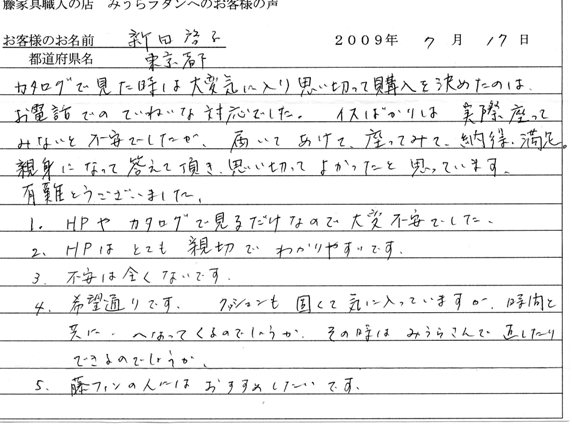 藤家具職人の店　みうらラタンへのお客様の声
お客様のお名前　新田 啓子　2009年 7月 17日
都道府県名　東京都下
カタログで見た時は大変気に入り思い切って購入を決めたのは、
お電話でのていねいな対応でした。イスばかりは実際座って
みないと不安でしたが、届いてあけて、座ってみて、納得、満足。
親身になって答えて頂き、思い切ってよかったと思っています。
有難とうございました。
1. HPやカタログで見るだけなので大変不安でした。
2. HPはとても親切でわかりやすいです。
3. 不安は全くないです。
4. 希望通りです。クッションも固くて気に入っていますが、時間と
共に、へなってくるのでしょうか。その時はみうらさんで直したり
できるのでしょうか。
5. 藤ファンの人にはおすすめしたいです。